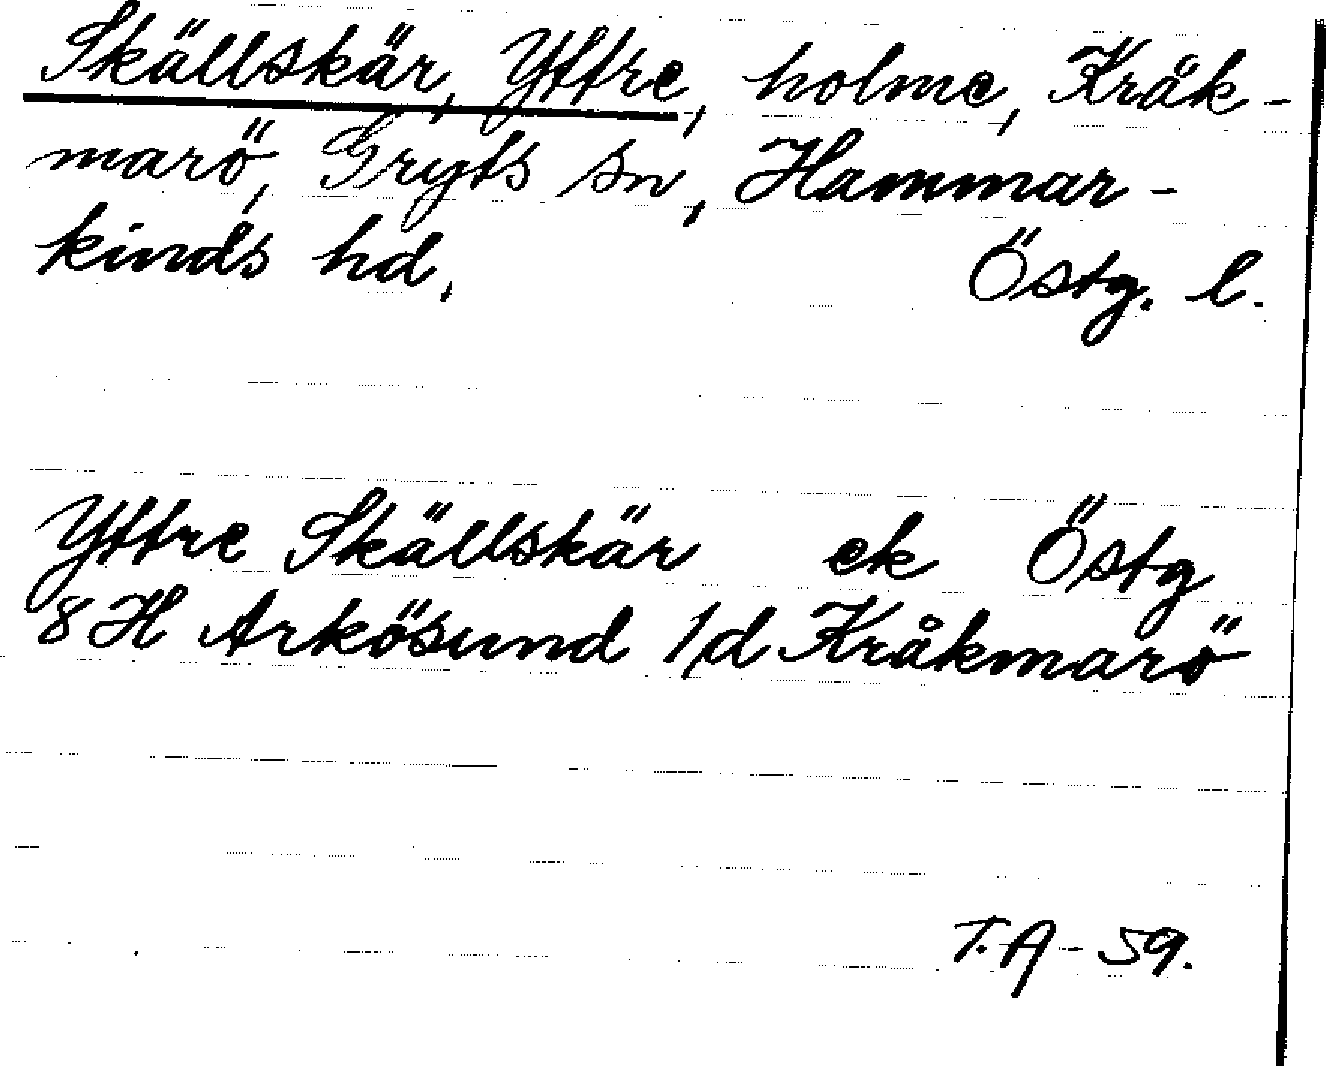 Skällskär, Yttre, holme, Kråk-
marö, Gryts sn, Hammar-
kinds hd. Östg. l.
Yttre Skällskär ek Östg
8 H Arkösund 1/d Kråkmarö
T.A - 59.